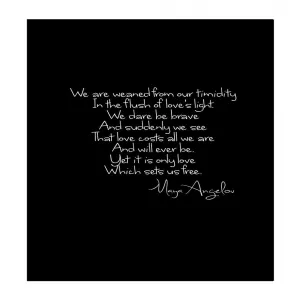 We are weaned from our timidity
In the flush of love's light
We dare be brave
And suddenly we see
That love costs all we are
And will ever be.
Yet it is only love
Which sets us free.
Maya Angelou